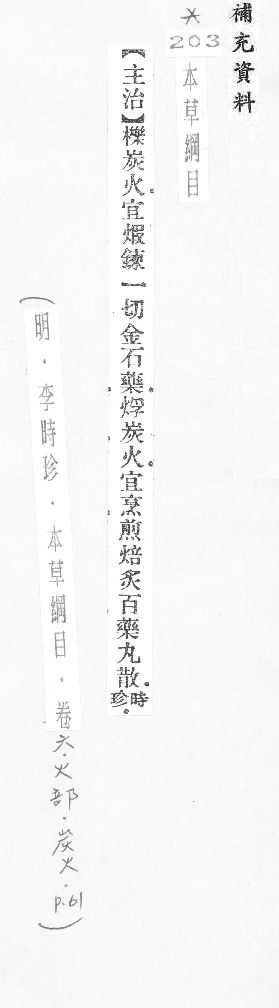 補充資料
*203
本草綱目
【主治】櫟炭火。宜煅鍊一切金石藥。烰炭火。宜烹煎焙炙百藥丸散。時珍。
(明．李時珍．本草綱目．卷六．火部．炭火．p.61)